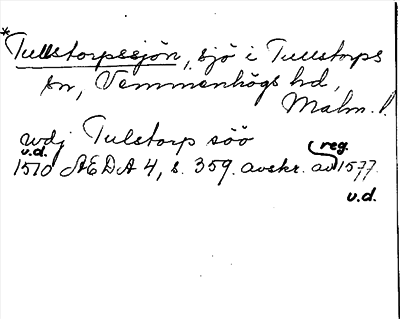 *Tullstorpssjön, sjö i Tullstorps
sn, Vemmenhögs hd,
Malm. l.
wdj Tulstorp söö
u.d. reg.
1570 AEDA 4, s. 359. avskr. av 1577.
u.d.